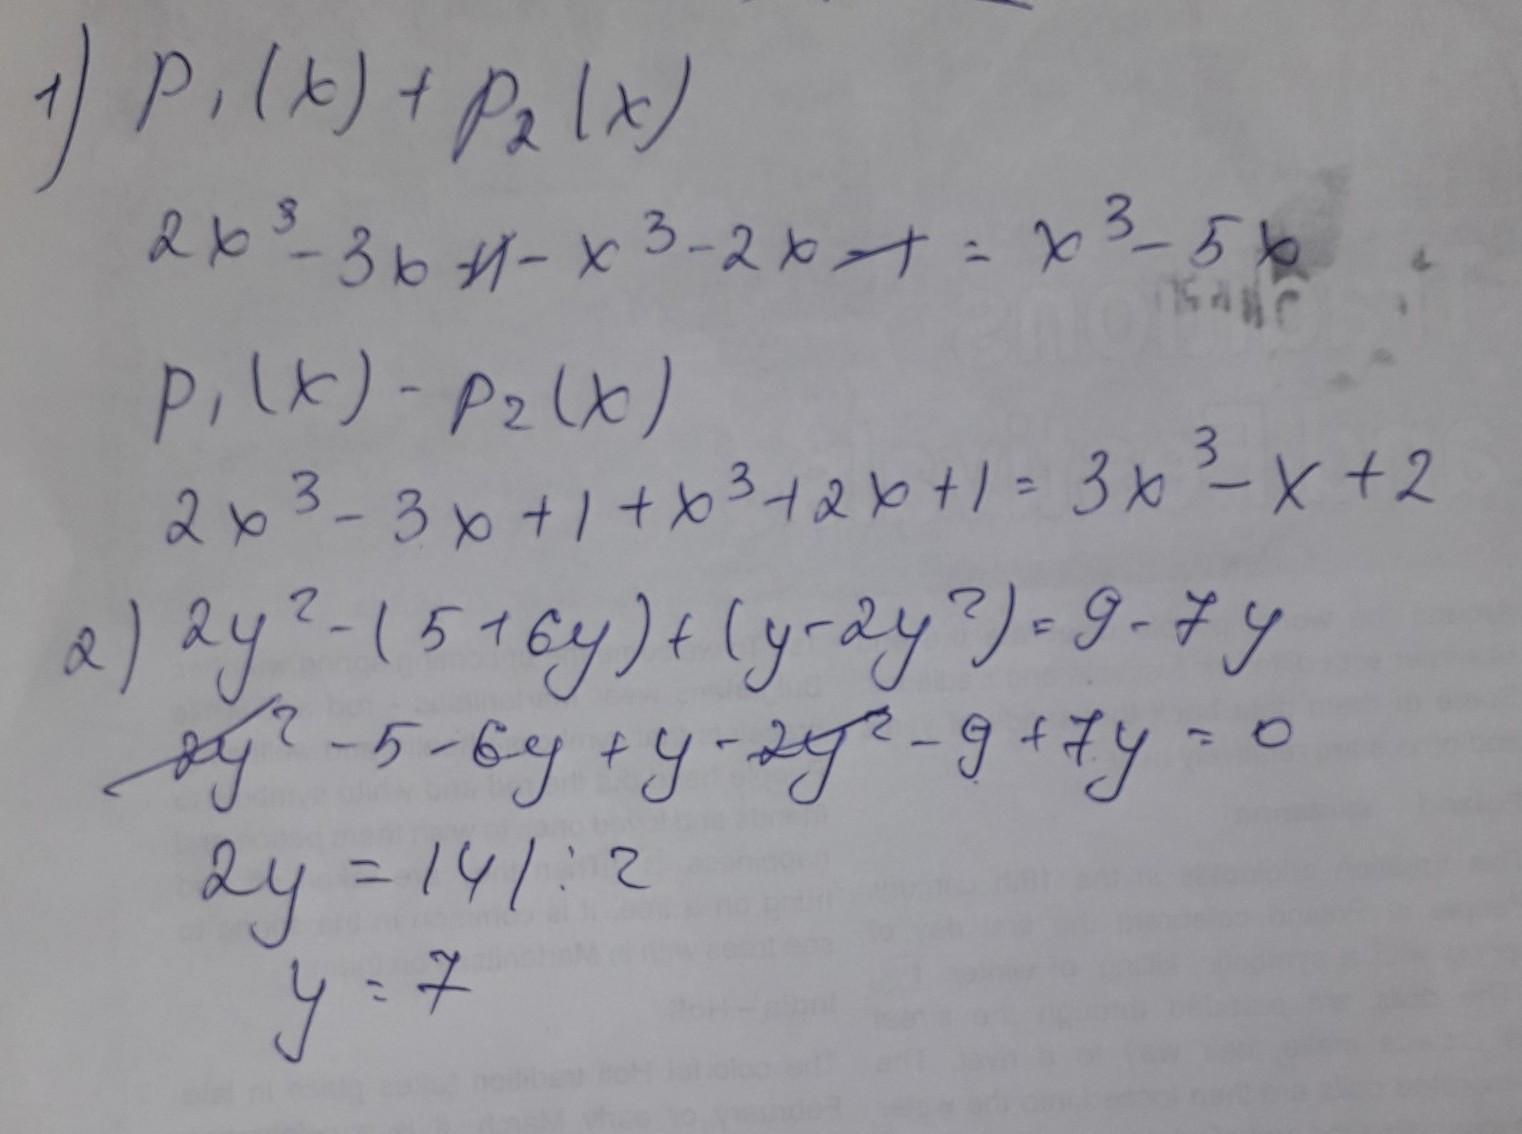 1) P₁(x) + P₂(x)
2x³ - 3x + 1 - x³ - 2x - 1 = x³ - 5x
P₁(x) - P₂(x)
2x³ - 3x + 1 + x³ + 2x + 1 = 3x³ - x + 2
2) 2y² - (5 + 6y) + (y - 2y²) = 9 - 7y
2y² - 5 - 6y + y - 2y² - 9 + 7y = 0
2y = 14 | : 2
y = 7